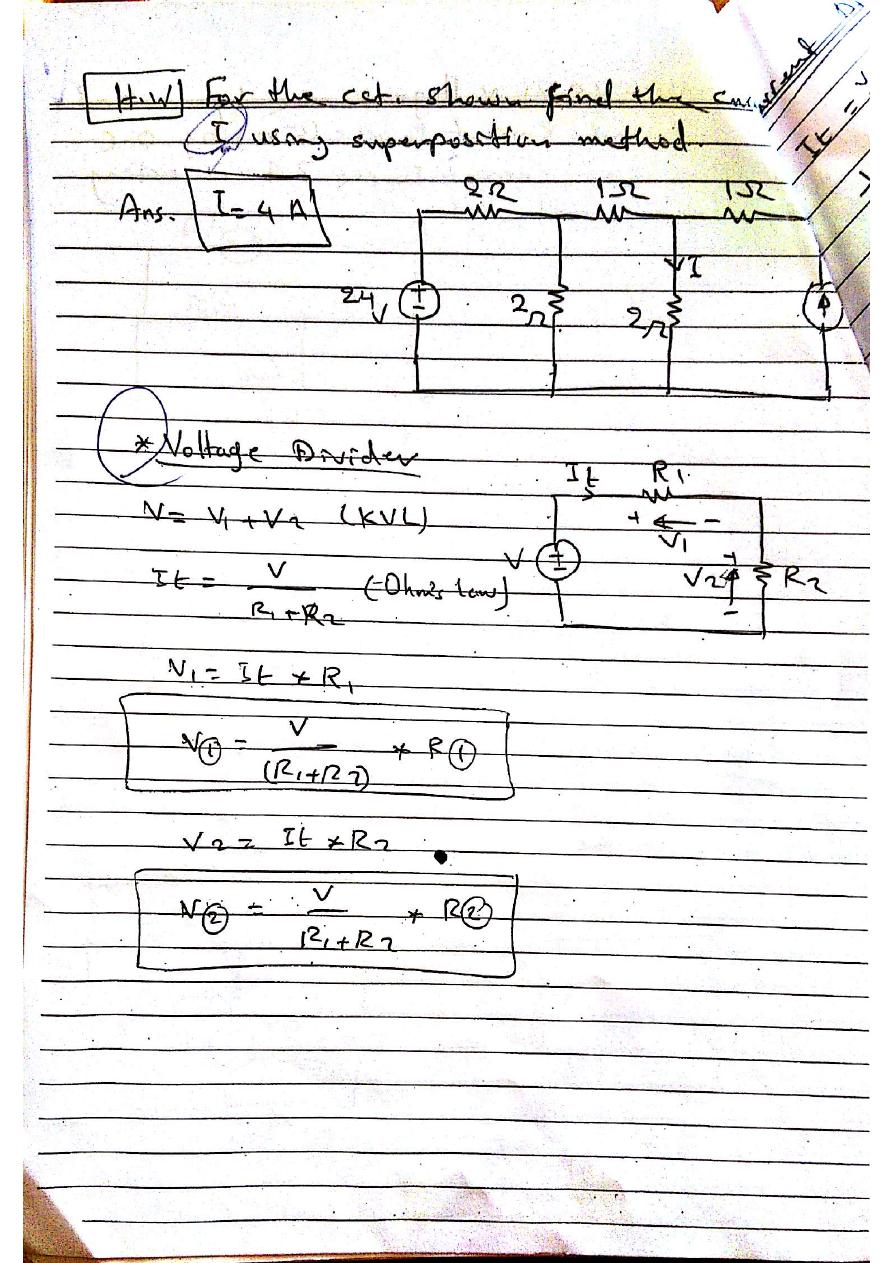 H.W For the cct. shown find the current
I using superposition method.
Ans. I = 4 A
2Ω 1Ω 1Ω
I
24 V
2Ω
2Ω
* Voltage Divider
V = V1 + V2 (KVL)
It = V / R1 + R2 (Ohm's law)
V1 = It * R1
V1 = V / (R1 + R2) * R1
V2 = It * R2
V2 = V / R1 + R2 * R2
It R1
+ -
V1
V
+
V2 R2
-
It =